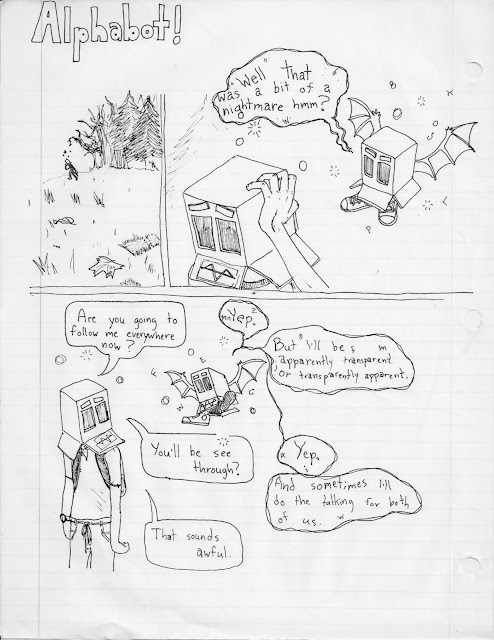 Alphabot!
"Well" that
was a bit of a
nightmare hmm?
B
K
S
W
P
L
Are you going to
follow me everywhere
now?
Yep.
"But" I'll be
apparently transparent
or transparently apparent.
F
E
C
W
You'll be see
through?
Yep.
That sounds
awful.
And sometimes I'll
do the talking for both
of us. w